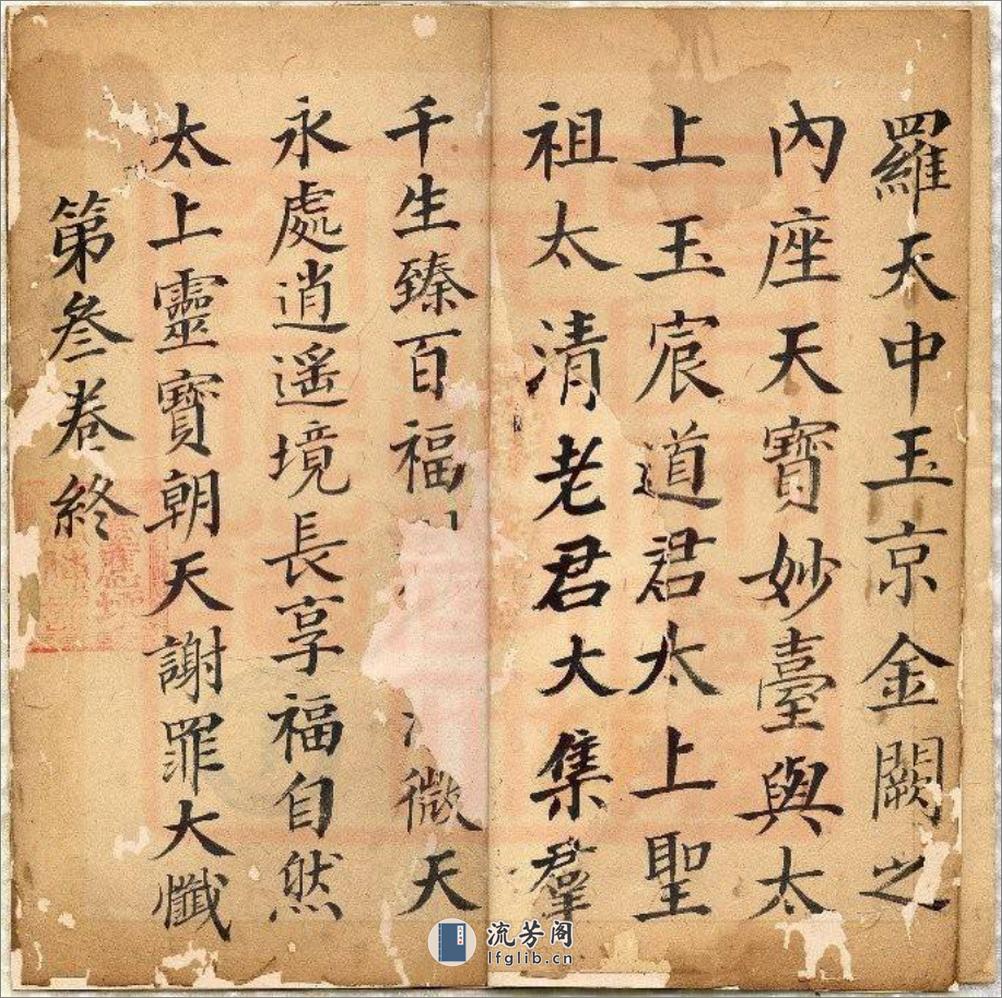 羅天中玉京金闕之
內座天寶妙臺與太
上玉宸道君太上聖
祖太清老君大集羣
千生臻百福
微天
永處逍遥境長享福自然
太上靈寶朝天謝罪大懺
第叄卷終
流芳阁
lfglib.cn